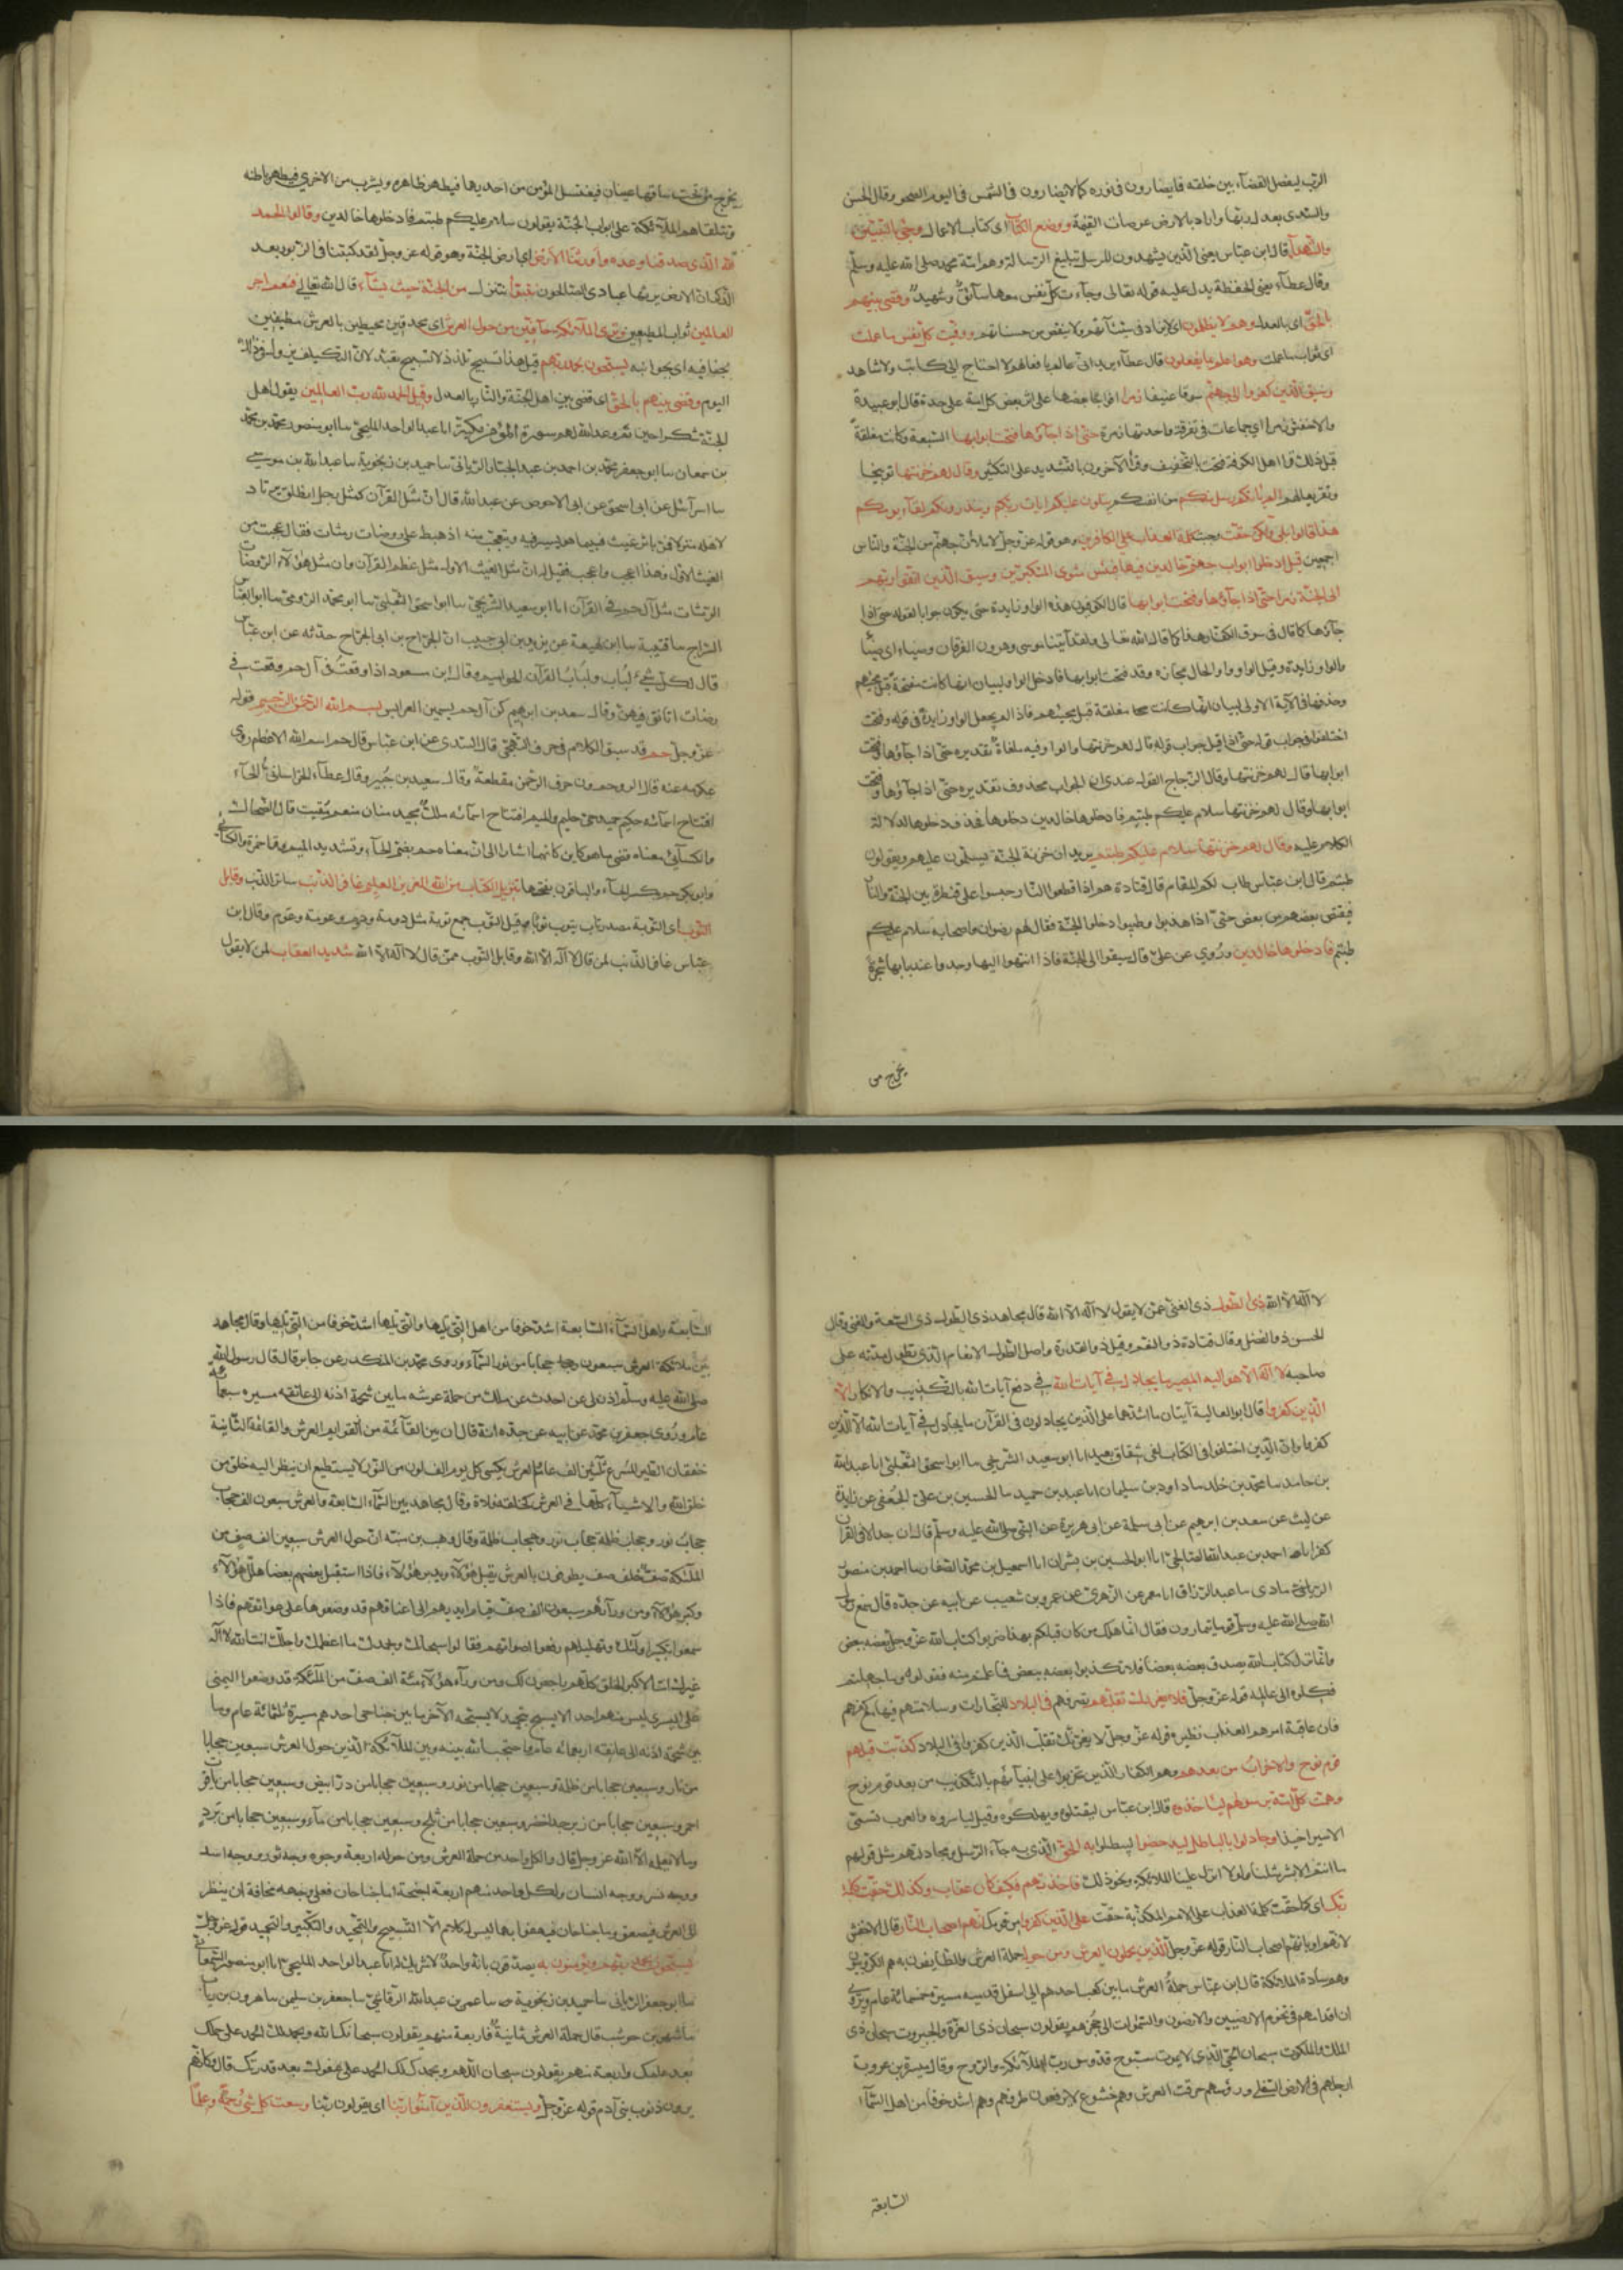 الرب ليفصل القضاء بين خلقه فما يضارون في نوره كما لا يضارون في الشمس في اليوم الصحو وقال الحسن
والسدي بعدل ربها واراد بالارض عرصات القيمة ووضع الكتاب اى كتاب الاعمال وجىء بالنبيين
والشهدآء قال ابن عباس يعنى الذين يشهدون للرسل بتبليغ الرسالة وهم امة محمد صلى الله عليه وسلم
وقال عطآء يعنى الحفظة يدل عليه قوله تعالى وجآءت كل نفس معها سآئق وشهيد وقضى بينهم
بالحق اى بالعدل وهم لا يظلمون اى لا يزاد في سيئآتهم ولا ينقص من حسناتهم ووفيت كل نفس ما عملت
اى ثواب ما عملت وهو اعلم بما يفعلون قال عطآء يريد انى عالم بافعالهم لا احتاج الى كاتب ولا شاهد
وسيق الذين كفروا الى جهنم سوقا عنيفا زمرا افواجا بعضها على اثر بعض كل امة على حدة قال ابو عبيدة
والاخفش زمرا اى جماعات في تفرقة واحدتها زمرة حتى اذا جآؤها فتحت ابوابها السبعة وكانت مغلقة
قبل ذلك قرا اهل الكوفة فتحت بالتخفيف وقرأ الآخرون بالتشديد على التكثير وقال لهم خزنتها توبيخا
وتقريعا لهم الم ياتكم رسل منكم من انفسكم يتلون عليكم ايات ربكم وينذرونكم لقآء يومكم
هذا قالوا بلى ولكن حقت وجبت كلمة العذاب على الكافرين وهو قوله عز وجل لاملأن جهنم من الجنة والناس
اجمعين قيل ادخلوا ابواب جهنم خالدين فيها فبئس مثوى المتكبرين وسيق الذين اتقوا ربهم
الى الجنة زمرا حتى اذا جآؤها وفتحت ابوابها قال الكوفيون هذه الواو زايدة حتى يكون جوابا لقوله حتى اذا
جآؤها كما قال في سوق الكفار وهذا كما قال الله تعالى ولقد آتينا موسى وهرون الفرقان وضياء اى ضيآء
والواو زايدة وقيل الواو واو الحال مجازه وقد فتحت ابوابها فادخل الواو لبيان انها كانت مفتحة قبل مجيئهم
وحذفها في الآية الاولى لبيان انها كانت مغلقة قبل مجيئهم فاذا لم يجعل الواو زايدة في قوله وفتحت
اختلفوا في جواب قوله حتى اذا قيل جواب قوله قال لهم خزنتها والواو فيه ملغاة تقديره حتى اذا جآؤها وفتحت
ابوابها قال لهم خزنتها وقال الزجاج القول عندى ان الجواب محذوف تقديره حتى اذا جآؤها وفتحت
ابوابها وقال لهم خزنتها سلام عليكم طبتم فادخلوها خالدين دخلوها فحذف دخلوها لدلالة
الكلام عليه وقال لهم خزنتها سلام عليكم طبتم يريد ان خزنة الجنة يسلمون عليهم ويقولون
طبتم قال ابن عباس طاب لكم المقام قال قتادة هم اذا قطعوا النار حبسوا على قنطرة بين الجنة والنار
فيقتص بعضهم من بعض حتى اذا هذبوا وطيبوا دخلوا الجنة فقال لهم رضوان واصحابه سلام عليكم
طبتم فادخلوها خالدين وروي عن على قال سيقوا الى الجنة فاذا انتهوا اليها وجدوا عند بابها شجرة
يخرج من
يخرج من تحت ساقها عينان فيغتسل المؤمن من احديها فيطهر ظاهره ويشرب من الاخرى فيطهر باطنه
وتتلقاهم الملآئكة على ابواب الجنة يقولون سلام عليكم طبتم فادخلوها خالدين وقالوا الحمد
لله الذى صدقنا وعده واورثنا الارض اى ارض الجنة وهو قوله عز وجل لقد كتبنا في الزبور من بعد
الذكر ان الارض يرثها عبادى الصالحون نتبوأ ننزل من الجنة حيث نشآء قال الله تعالى فنعم اجر
العالمين ثواب المطيعين وترى الملآئكة حآفين من حول العرش اى محدقين محيطين بالعرش مطيفين
بحفافيه اى بجوانبه يسبحون بحمد ربهم قيل هذا تسبيح تلذذ لا تسبيح تعبد لان التكليف يزول في ذلك
اليوم وقضى بينهم بالحق اى قضى بين اهل الجنة والنار بالعدل وقيل الحمد لله رب العالمين يقول اهل
الجنة شكرا حين تم وعد الله لهم سورة المؤمن مكية انا عبد الواحد المليحى سا ابو منصور محمد بن محمد
بن سمعان سا ابو جعفر محمد بن احمد بن عبد الجبار الريانى سا حميد بن زنجوية سا عبد الله بن موسى
سا اسرآئيل عن ابى اسحق عن ابى الاحوص عن عبد الله قال ان مثل القرآن كمثل رجل انطلق يرتاد
لاهله منزلا فمر باثر غيث فبينما هو يسير فيه ويتعجب منه اذ هبط على روضات دمثات فقال عجبت من
الغيث الاول فهذا اعجب واعجب فقيل له ان مثل الغيث الاول مثل عظم القرآن وان مثل هؤلآء الروضات
الدمثات مثل آل حم في القرآن انا ابو سعيد الشريحى سا ابو اسحق الثعلبى سا ابو محمد الرومى سا ابو العباس
السراج سا قتيبة سا ابن لهيعة عن يزيد بن ابى حبيب ان الجراح بن ابى الجراح حدثه عن ابن عباس
قال لكل شىء لباب ولباب القرآن الحواميم وقال ابن مسعود اذا وقعت في آل حم وقعت في
روضات اتانق فيهن وقال سعد بن ابرهيم كن آل حم يسمين العرايس بسم الله الرحمن الرحيم قوله
عز وجل حم قد سبق الكلام في حروف التهجى قال السدى عن ابن عباس قال حم اسم الله الاعظم وروى
عكرمه عنه قال الر وحم ون حروف الرحمن مقطعة وقال سعيد بن جبير وقال عطآء الخراسانى الحآء
افتتاح اسمآئه حكيم حميد حى حليم والميم افتتاح اسمآئه ملك مجيد منان قال الضحاك
والكسآئى معناه قضى ما هو كاين كانهما اشارا الى ان معناه حم بضم الحآء وتشديد الميم وقرا حمزة والكسآئى
وابو بكر حم بكسر الحآء والباقون بفتحها تنزيل الكتاب من الله العزيز العليم غافر الذنب ساتر الذنب وقابل
التوب اى التوبة مصدر تاب يتوب توبا وقيل التوب جمع توبة مثل دومة ودوم وعومة وعوم وقال ابن
عباس غافر الذنب لمن قال لا آله الا الله وقابل التوب ممن قال لا آله الا الله شديد العقاب لمن لا يقول
لا آله الا الله ذى الطول ذى الغنى عمن لا يقول لا آله الا الله قال مجاهد ذى الطول ذى السعة والغنى وقال
الحسن ذو الفضل وقال قتادة ذو النعم وقيل ذو القدرة واصل الطول الانعام الذى تطول مدته على
صاحبه لا آله الا هو اليه المصير ما يجادل في آيات الله في دفع آيات الله بالتكذيب والانكار الا
الذين كفروا قال ابو العالية آيتان ما اشدهما على الذين يجادلون في القرآن ما يجادل في آيات الله الا الذين
كفروا وان الذين اختلفوا في الكتاب لفى شقاق بعيد انا ابو سعيد الشريحى سا ابو اسحق الثعلبى انا عبد الله
بن حامد سا محمد بن خالد سا داود بن سليمان انا عبد بن حميد سا الحسين بن على الجعفى عن زايدة
عن ليث عن سعد بن ابرهيم عن ابى سلمة عن ابى هريرة عن النبى صلى الله عليه وسلم قال ان جدالا في القرآن
كفر انا احمد بن عبد الله الصالحى انا ابو الحسين بن بشران انا اسمعيل بن محمد الصفار سا احمد بن منصور
الرمادى سا عبد الرزاق انا معمر عن الزهرى عن عمرو بن شعيب عن ابيه عن جده قال سمع رسول
الله صلى الله عليه وسلم قوما يتمارون فقال انما هلك من كان قبلكم بهذا ضربوا كتاب الله عز وجل بعضه ببعض
وانما نزل كتاب الله يصدق بعضه بعضا فلا تكذبوا بعضه ببعض فما علمتم منه فقولوه وما جهلتم
فكلوه الى عالمه قوله عز وجل فلا يغررك تقلبهم تصرفهم في البلاد للتجارات وسلامتهم فيها مع كفرهم
فان عاقبة امرهم العذاب نظيره قوله عز وجل لا يغرنك تقلب الذين كفروا في البلاد كذبت قبلهم
قوم نوح والاحزاب من بعدهم وهم الكفار الذين تحزبوا على انبيآئهم بالتكذيب من بعد قوم نوح
وهمت كل امة برسولهم لياخذوه قال ابن عباس ليقتلوه ويهلكوه وقيل لياسروه والعرب تسمى
الاسير اخيذا وجادلوا بالباطل ليدحضوا ليبطلوا به الحق الذى به جآء الرسل ومجادلتهم مثل قولهم
ما انتم الا بشر مثلنا ولولا انزل علينا الملائكة ونحو ذلك فاخذتهم فكيف كان عقاب وكذلك حقت كلمة
ربك اى كما حقت كلمة العذاب على الامم المكذبة حقت على الذين كفروا من قومك انهم اصحاب النار قال الاخفش
لانهم او بانهم اصحاب النار قوله عز وجل الذين يحملون العرش ومن حوله حملة العرش والطآيفون به هم الكروبيون
وهم سادة الملائكة قال ابن عباس حملة العرش ما بين كعب احدهم الى اسفل قدميه مسيرة خمسمائة عام ويروى
ان اقدامهم في تخوم الارضيين والارضون والسموات الى حجزهم يقولون سبحان ذى العزة والجبروت سبحان ذى
الملك والملكوت سبحان الحى الذى لا يموت سبوح قدوس رب الملآئكة والروح وقال ميسرة بن عروبة
ارجلهم في الارض السفلى ورؤسهم خرقت العرش وهم خشوع لا يرفعون طرفهم وهم اشد خوفا من اهل السمآء
السابعة
السابعة واهل السمآء السابعة اشد خوفا من اهل التى تليها والتى تليها اشد خوفا من التى تليها وقال مجاهد
بين ملائكة العرش سبعون حجابا من نور السمآء وروى محمد بن المنكدر عن جابر قال قال رسول الله
صلى الله عليه وسلم اذن لى ان احدث عن ملك من حملة عرشه ما بين شحمة اذنه الى عاتقه مسيره سبعمآئة
عام وروى جعفر بن محمد عن ابيه عن جده انه قال ان بين القآئمة من قوايم العرش والقائمة الثانية
خفقان الطير المسرع ثلثين الف عام العرش يكسى كل يوم الف لون من النور لا يستطيع ان ينظر اليه خلق من
خلق الله والاشيآء كلها في العرش كحلقة في فلاة وقال مجاهد بين السمآء السابعة والعرش سبعون الف حجاب
حجاب نور وحجاب ظلمة حجاب نور وحجاب ظلمة وقال وهب بن منبه ان حول العرش سبعين الف صف من
الملئكة صف خلف صف يطوفون بالعرش يقبل هؤلآء ويدبر هؤلآء فاذا استقبل بعضهم بعضا هلل هؤلآء
وكبر هؤلآء ومن ورآئهم سبعون الف صف قيام ايديهم الى اعناقهم قد وضعوها على عواتقهم فاذا
سمعوا تكبير اولئك وتهليلهم رفعوا اصواتهم فقالوا سبحانك وبحمدك ما اعظمك واجلك انت الله لا آله
غيرك انت الاكبر الخلق كلهم راجعون لك ومن ورآء هؤلآء مئة الف صف من الملآئكة قد وضعوا اليمنى
على اليسرى ليس منهم احد الا يسبح بتحميد لا يسبحه الآخر ما بين جناحى احدهم مسيرة ثلثمائة عام وما
بين شحمة اذنه الى عاتقه اربعمائة عام واحتجب الله بينه وبين الملآئكة الذين حول العرش سبعين حجابا
من نار وسبعين حجابا من ظلمة وسبعين حجابا من نور وسبعين حجابا من در ابيض وسبعين حجابا من ياقوت
احمر وسبعين حجابا من زبرجد اخضر وسبعين حجابا من ثلج وسبعين حجابا من مآء وسبعين حجابا من برد
وما لا يعلمه الا الله عز وجل قال ولكل واحد من حملة العرش ومن حوله اربعة وجوه وجه ثور ووجه اسد
ووجه نسر ووجه انسان ولكل واحد منهم اربعة اجنحة اما جناحان فعلى وجهه مخافة ان ينظر
الى العرش فيصعق واما جناحان فيهفو بهما ليس له كلام الا التسبيح والتحميد والتكبير والتمجيد قوله عز وجل
يسبحون بحمد ربهم ويؤمنون به يصدقون بانه واحد لا شريك له انا عبد الواحد المليحى انا ابو منصور السمعانى
سا ابو جعفر الريانى سا حميد بن زنجوية سا عمر بن عبد الله الرقاشى سا جعفر بن سليمن سا هرون بن رياب
سا شهر بن حوشب قال حملة العرش ثمانية فاربعة منهم يقولون سبحانك الله وبحمدك لك الحمد على حلمك
بعد علمك واربعة منهم يقولون سبحان اللهم وبحمدك لك الحمد على عفوك بعد قدرتك قال وكانهم
يرون ذنوب بنى آدم قوله عز وجل ويستغفرون للذين آمنوا ربنا اى يقولون ربنا وسعت كل شىء رحمة وعلما